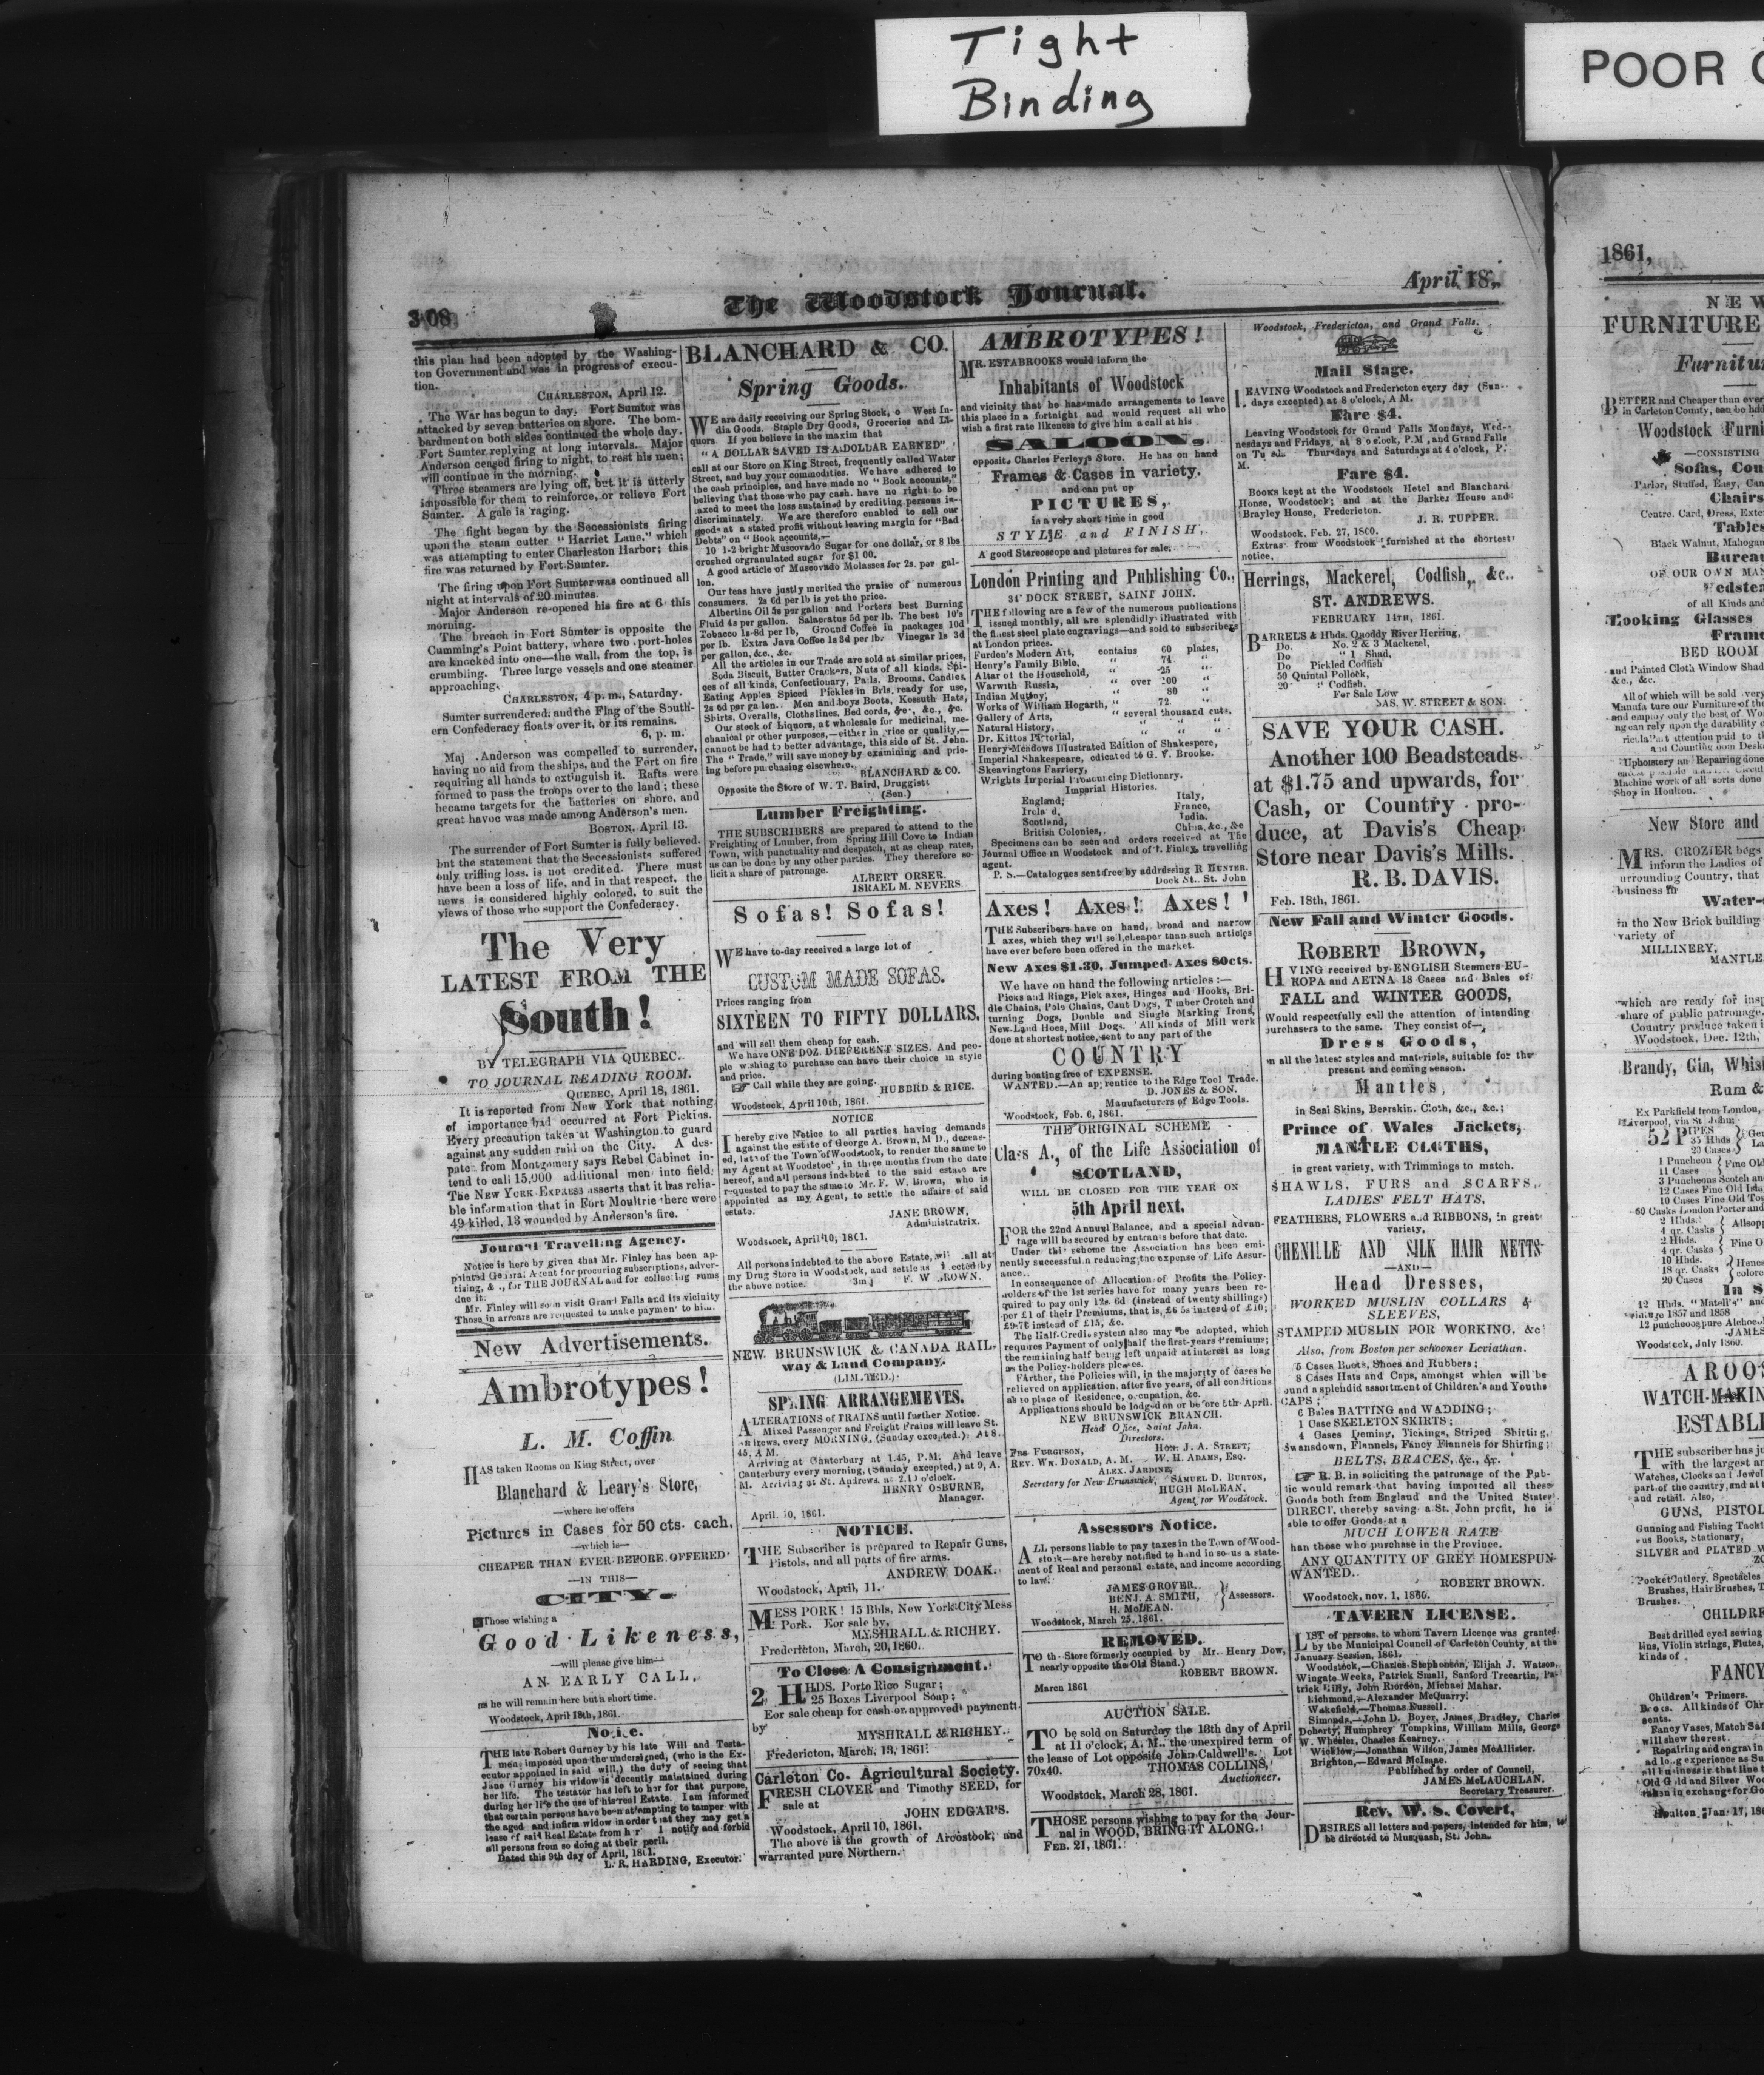 Tight
Binding
POOR
308
The Woodstock Journal.
April 18,
this plan had been adopted by the Washing-
ton Government and was in progress of execu-
tion.
CHARLESTON, April 12.
The War has begun to day. Fort Sumter was
attacked by seven batteries on shore. The bom-
bardment on both sides continued the whole day.
Fort Sumter replying at long intervals. Major
Anderson ceased firing to night, to rest his men;
will continue in the morning.
Three steamers are lying off, but it is utterly
impossible for them to reinforce, or relieve Fort
Sumter. A gale is raging.
The fight began by the Secessionists firing
upon the steam cutter "Harriet Lane," which
was attempting to enter Charleston Harbor; this
fire was returned by Fort Sumter.
The firing upon Fort Sumter was continued all
night at intervals of 20 minutes.
Major Anderson re-opened his fire at 6 this
morning.
The breach in Fort Sumter is opposite the
Cumming's Point battery, where two port-holes
are knocked into one—the wall, from the top, is
crumbling. Three large vessels and one steamer
approaching.
CHARLESTON, 4 p. m., Saturday.
Sumter surrendered; and the Flag of the South-
ern Confederacy floats over it, or its remains.
6, p. m.
Maj. Anderson was compelled to surrender,
having no aid from the ships, and the Fort on fire
requiring all hands to extinguish it. Rafts were
formed to pass the troops over to the land; these
became targets for the batteries on shore, and
great havoc was made among Anderson's men.
BOSTON, April 13.
The surrender of Fort Sumter is fully believed.
but the statement that the Secessionists suffered
only trifling loss, is not credited. There must
have been a loss of life, and in that respect, the
news is considered highly colored, to suit the
views of those who support the Confederacy.
The Very
LATEST FROM THE
South!
BY TELEGRAPH VIA QUEBEC.
TO JOURNAL READING ROOM.
QUEBEC, April 18, 1861.
It is reported from New York that nothing
of importance had occurred at Fort Pickins.
Every precaution taken at Washington to guard
against any sudden raid on the City. A des-
patch from Montgomery says Rebel Cabinet in-
tend to call 15,000 additional men into field;
The NEW YORK EXPRESS asserts that it has relia-
ble information that in Fort Moultrie there were
49 killed, 13 wounded by Anderson's fire.
Journal Travelling Agency.
Notice is here by given that Mr. Finley has been ap-
pointed General Agent for procuring subscriptions, adver-
tising, &c., for THE JOURNAL and for collecting sums
due it.
Mr. Finley will soon visit Grand Falls and its vicinity
Those in arrears are requested to make payment to him.
New Advertisements.
Ambrotypes!
L. M. Coffin
HAS taken Rooms on King Street, over
Blanchard & Leary's Store,
—where he offers
Pictures in Cases for 50 cts. each,
—which is—
CHEAPER THAN EVER BEFORE OFFERED
—IN THIS—
CITY.
Those wishing a
Good Likeness,
—will please give him—
AN EARLY CALL,
as he will remain here but a short time.
Woodstock, April 18th, 1861.
Notice.
THE late Robert Gurney by his late Will and Testa-
ment imposed upon the undersigned, (who is the Ex-
ecutor appointed in said will,) the duty of seeing that
Jane Gurney his widow is decently maintained during
her life. The testator has left to her for that purpose,
during her life the use of his real Estate. I am informed
that certain persons have been attempting to tamper with
the aged and infirm widow in order that they may get a
lease of said Real Estate from her I notify and forbid
all persons from so doing at their peril.
Dated this 9th day of April, 1861.
L. R. HARDING, Executor.
BLANCHARD & CO.
Spring Goods.
WE are daily receiving our Spring Stock, o West In-
dia Goods. Staple Dry Goods, Groceries and Li-
quors If you believe in the maxim that
"A DOLLAR SAVED IS A DOLLAR EARNED"
call at our Store on King Street, frequently called Water
Street, and buy your commodities. We have adhered to
the cash principles, and have made no "Book accounts,"
believing that those who pay cash. have no right to be
taxed to meet the loss sustained by crediting persons in-
discriminately. We are therefore enabled to sell our
goods at a stated profit without leaving margin for "Bad
Debts" on "Book accounts,—
10 1-2 bright Muscovado Sugar for one dollar, or 8 lbs
crushed or granulated sugar for $1 00.
A good article of Muscovado Molasses for 2s. per gal-
lon.
Our teas have justly merited the praise of numerous
consumers. 2s 6d per lb is yet the price.
Albertine Oil 5s per gallon and Porters best Burning
Fluid 4s per gallon. Salaeratus 5d per lb. The best 10's
Tobacco 1s-8d per lb, Ground Coffee in packages 10d
per lb. Extra Java Coffee 1s 3d per lb. Vinegar 1s 3d
per gallon, &c., &c.
All the articles in our Trade are sold at similar prices,
Soda Biscuit, Butter Crackers, Nuts of all kinds. Spi-
ces of all kinds, Confectionary, Pails, Brooms, Candles,
Eating Apples Spiced Pickles in Brls, ready for use,
2s 6d per gallon. Men and boys Boots, Kossuth Hats,
Shirts, Overalls, Clothslines, Bed cords, &c., &c., &c.
Our stock of Liquors, at wholesale for medicinal, me-
chanical or other purposes,—either in price or quality,—
cannot be had to better advantage, this side of St. John.
The "Trade," will save money by examining and pric-
ing before purchasing elsewhere.
BLANCHARD & CO.
Opposite the Store of W. T. Baird, Druggist.
(Sen.)
Lumber Freighting.
THE SUBSCRIBERS are prepared to attend to the
Freighting of Lumber, from Spring Hill Cove to Indian
Town, with punctuality and despatch, at as cheap rates,
as can be done by any other parties. They therefore so-
licit a share of patronage.
ALBERT ORSER.
ISRAEL M. NEVERS
Sofas! Sofas!
WE have to-day received a large lot of
CUSTOM MADE SOFAS.
Prices ranging from
SIXTEEN TO FIFTY DOLLARS.
and will sell them cheap for cash.
We have ONE DOZ. DIFFERENT SIZES. And peo-
ple wishing to purchase can have their choice in style
and price.
Call while they are going.
HUBBRD & RICE.
Woodstock, April 10th, 1861.
NOTICE
I hereby give Notice to all parties having demands
against the estate of George A. Brown, M D., deceas-
ed, late of the Town of Woodstock, to render the same to
my Agent at Woodstock, in three months from the date
hereof, and all persons indebted to the said estate are
requested to pay the same to Mr. F. W. Brown, who is
appointed as my Agent, to settle the affairs of said
estate.
JANE BROWN,
Administratrix.
Woodstock, April 10, 1861.
All persons indebted to the above Estate, will call at
my Drug Store in Woodstock, and settle as directed by
the above notice. 3m F. W BROWN.
NEW BRUNSWICK & CANADA RAIL-
way & Land Company.
(LIMITED.)
SPRING ARRANGEMENTS.
ALTERATIONS of TRAINS until further Notice.
Mixed Passenger and Freight Trains will leave St.
Andrews, every MORNING, (Sunday excepted.) At 8..
45, A M.
Arriving at Canterbury at 1.45, P.M. And leave
Canterbury every morning, (Sunday excepted,) at 9, A.
M. Arriving at St. Andrews, at 2.15 o'clock.
HENRY OSBURNE,
Manager.
April. 10, 1861.
NOTICE.
THE Subscriber is prepared to Repair Guns,
Pistols, and all parts of fire arms.
ANDREW DOAK.
Woodstock, April, 11.
MESS PORK! 15 Bbls, New York City Mess
Pork. For sale by,
MYSHRALL & RICHEY.
Fredericton, March, 20, 1860.
To Close A Consignment.
2 HHDS. Porto Rico Sugar;
25 Boxes Liverpool Soap;
For sale cheap for cash or approved payment
by
MYSHRALL & RICHEY.
Fredericton, March, 13, 1861.
Carleton Co. Agricultural Society.
FRESH CLOVER and Timothy SEED, for
sale at
JOHN EDGAR'S.
Woodstock, April 10, 1861.
The above is the growth of Aroostook, and
warranted pure Northern.
AMBROTYPES!
MR. ESTABROOKS would inform the
Inhabitants of Woodstock
and vicinity that he has made arrangements to leave
this place in a fortnight and would request all who
wish a first rate likeness to give him a call at his
SALOON,
opposite Charles Perley's Store. He has on hand
Frames & Cases in variety.
and can put up
PICTURES,
in a very short time in good
STYLE and FINISH,
A good Stereoscope and pictures for sale.
London Printing and Publishing Co.,
34 DOCK STREET, SAINT JOHN.
THE following are a few of the numerous publications
issued monthly, all are splendidly illustrated with
the finest steel plate engravings—and sold to subscribers
at London prices.
Furden's Modern Art, contains 60 plates,
Henry's Family Bible, " 74 "
Altar of the Household, " 25 "
Warwith Russia, " over 100 "
Indian Mutiny, " 80 "
Works of William Hogarth, " 72 "
Gallery of Arts, " several thousand cuts,
Natural History, " " "
Dr. Kittos Pictorial, " " "
Henry Meadows Illustrated Edition of Shakespere,
Imperial Shakespeare, edicated to G. V. Brooke.
Skeavingtons Farriery,
Wrights Imperial Pronouncing Dictionary.
Imperial Histories.
England, Italy,
Ireland, France,
Scotland, India,
British Colonies, China, &c., &c
Specimens can be seen and orders received at The
Journal Office in Woodstock and of T. Finley, travelling
agent.
P. S.—Catalogues sent free by addressing R HUNTER.
Dock St.. St. John
Axes! Axes! Axes!
THE Subscribers have on hand, broad and narrow
axes, which they will sell cheaper than such articles
have ever before been offered in the market.
New Axes $1.30, Jumped Axes 80cts.
We have on hand the following articles:—
Picks and Rings, Pick axes, Hinges and Hooks, Bri-
dle Chains, Pole Chains, Cant Dogs, Timber Crotch and
turning Dogs, Double and Single Marking Irons,
New Land Hoes, Mill Dogs. All kinds of Mill work
done at shortest notice, sent to any part of the
COUNTRY
during boating free of EXPENSE.
WANTED.—An apprentice to the Edge Tool Trade.
D. JONES & SON.
Manufacturers of Edge Tools.
Woodstock, Feb. 6, 1861.
THE ORIGINAL SCHEME
Class A., of the Life Association of
SCOTLAND,
WILL BE CLOSED FOR THE YEAR ON
5th April next,
FOR the 22nd Annual Balance, and a special advan-
tage will be secured by entrants before that date.
Under this scheme the Association has been emi-
nently successful in reducing the expense of Life Assur-
ance.
In consequence of Allocation of Profits the Policy-
holders of the 1st series have for many years been re-
quired to pay only 12s. 6d (instead of twenty shillings)
per £1 of their Premiums, that is, £6 5s instead of £10;
£9-76 instead of £15, &c.
The Half-Credit system also may be adopted, which
requires Payment of only half the first-years Premiums;
the remaining half being left unpaid at interest as long
as the Policy-holders pleases.
FArther, the Policies will, in the majority of cases be
relieved on application, after five years, of all conditions
as to place of Residence, occupation, &c.
Applications should be lodged on or before 5th April.
NEW BRUNSWICK BRANCH.
Head Office, Saint John.
Directors.
FRS FURGUSON, HON. J. A. STREET;
REV. WM. DONALD, A. M. W. H. ADAMS, ESQ.
ALEX. JARDINE,
Secretary for New Brunswick, SAMUEL D. BURTON,
HUGH McLEAN,
Agent for Woodstock.
Assessors Notice.
ALL persons liable to pay taxes in the Town of Wood-
stock—are hereby notified to hand in to us a state-
ment of Real and personal estate, and income according
to law.
JAMES GROVER,
BENJ. A. SMITH, Assessors.
H. McLEAN.
Woodstock, March 25, 1861.
REMOVED.
TO th Store formerly occupied by Mr. Henry Dow,
nearly opposite the Old Stand.)
ROBERT BROWN.
March 1861
AUCTION SALE.
TO be sold on Saturday the 18th day of April
at 11 o'clock, A. M., the unexpired term of
the lease of Lot opposite John Caldwell's. Lot
70x40. THOMAS COLLINS,
Auctioneer.
Woodstock, March 28, 1861.
THOSE persons wishing to pay for the Jour-
nal in WOOD, BRING IT ALONG.
FEB. 21, 1861.
Woodstock, Fredericton, and Grand Falls.
Mail Stage.
LEAVING Woodstock and Fredericton every day (Sun-
days excepted) at 8 o'clock, A M.
Fare $4.
Leaving Woodstock for Grand Falls Mondays, Wed-
nesdays and Fridays, at 8 o'clock, P.M, and Grand Falls
on Thursdays and Saturdays at 4 o'clock, P.
M.
Fare $4.
BOOKS kept at the Woodstock Hotel and Blanchard
House, Woodstock; and at the Barker House and
Brayley House, Fredericton.
J. R. TUPPER.
Woodstock, Feb. 27, 1860.
Extras from Woodstock furnished at the shortest
notice.
Herrings, Mackerel, Codfish, &c.
ST. ANDREWS.
FEBRUARY 14TH, 1861.
BARRELS & Hhds. Quoddy River Herring,
Do. No. 2 & 3 Mackerel,
Do " 1 Shad,
Do Pickled Codfish
50 Quintal Pollock,
20 " Codfish.
For Sale Low
JAS. W. STREET & SON.
SAVE YOUR CASH.
Another 100 Beadsteads
at $1.75 and upwards, for
Cash, or Country pro-
duce, at Davis's Cheap
Store near Davis's Mills.
R. B. DAVIS.
Feb. 18th, 1861.
New Fall and Winter Goods.
ROBERT BROWN,
HVING received by ENGLISH Steamers EU-
ROPA and AETNA 18 Cases and Bales of
FALL and WINTER GOODS,
Would respectfully call the attention of intending
purchasers to the same. They consist of—
Dress Goods,
in all the latest styles and materials, suitable for the
present and coming season.
Mantles,
in Seal Skins, Bearskin, Cloth, &c., &c.;
Prince of Wales Jackets,
MANTLE CLOTHS,
in great variety, with Trimmings to match.
SHAWLS, FURS and SCARFS,
LADIES' FELT HATS,
FEATHERS, FLOWERS and RIBBONS, in great
variety,
CHENILLE AND SILK HAIR NETTS
—AND—
Head Dresses,
WORKED MUSLIN COLLARS &
SLEEVES,
STAMPED MUSLIN FOR WORKING, &c
Also, from Boston per schooner Leviathan.
5 Cases Boots, Shoes and Rubbers;
8 Cases Hats and Caps, amongst which will be
found a splendid assortment of Children's and Youths
CAPS;
6 Bales BATTING and WADDING;
1 Case SKELETON SKIRTS;
4 Cases Deming, Tickings, Striped Shirting,
Swansdown, Flannels, Fancy Flannels for Shirting;
BELTS, BRACES, &c., &c.
R. B. in soliciting the patronage of the Pub-
lic would remark that having imported all these
Goods both from England and the United States
DIRECT, thereby saving a St. John profit, he is
able to offer Goods at a
MUCH LOWER RATE
than those who purchase in the Province.
ANY QUANTITY OF GREY HOMESPUN
WANTED.
ROBERT BROWN.
Woodstock, nov. 1, 1860.
TAVERN LICENSE.
LIST of persons, to whom Tavern Licence was granted
by the Municipal Council of Carleton County, at the
January Session, 1861.
Woodstock,—Charles Stephenson, Elijah J. Watson,
Wingate Weeks, Patrick Small, Sanford Trecartin, Pa-
trick Killy, John Riordon, Michael Mahar.
Richmond,—Alexander McQuarry.
Wakefield,—Thomas Russell.
Simonds,—John D. Boyer, James Bradley, Charles
Doherty, Humphrey Tompkins, William Mills, George
W. Wheeler, Chasles Kearney.
Wicklow,—Jonathan Wilson, James McAllister.
Brighton,—Edward McIsaac.
Published by order of Council,
JAMES McLAUCHLAN,
Secretary Treasurer.
Rev. W. S. Covert,
DESIRES all letters and papers, intended for him, to
be directed to Musquash, St. John.
1861,
NEW
FURNITURE
Furnitu
BETTER and Cheaper than ever
in Carleton County, can be had
Woodstock Furni
—CONSISTING
Sofas, Cou
Parlor, Stuffed, Easy, Can
Chairs
Centre, Card, Dress, Exte
Tables
Black Walnut, Mahogan
Bureau
OF OUR OWN MAN
Bedstea
of all Kinds and
Looking Glasses
Frame
BED ROOM
and Painted Cloth Window Shad
&c., &c.
All of which will be sold very
Manufacture our Furniture of the
and employ only the best of Wo
ng can rely upon the durability o
attention paid to t
Upholstery and Repairing done
Machine work of all sorts done
Shop in Houlton.
New Store and
MRS. CROZIER begs
inform the Ladies of
urrounding Country, that
business in
Water-
in the New Brick building
variety of
MILLINERY,
MANTLE
which are ready for insp
share of public patronage.
Country produce taken i
Woodstock, Dec. 12th,
Brandy, Gin, Whis
Rum &
Ex Parkfield from London,
Liverpool, via St John:
52 PIPES
35 Hhds
20 Cases
1 Puncheon
11 Cases Fine Old
3 Puncheons Scotch an
12 Cases Fine Old Isla
10 Cases Fine Old To
60 Casks London Porter and
2 Hhds.
4 qr. Casks Allsop
2 Hhds.
4 qr. Casks Fine O
10 Hhds.
18 qr. Casks Henes
20 Cases colore
In S
12 Hhds. "Matell's" an
vintage 1857 and 1858
12 puncheons pure Alchoo
JAMES
Woodstock, July 1860.
AROOS
WATCH-MAKIN
ESTABLI
THE subscriber has j
with the largest a
Watches, Clocks and Jewel
part of the country, and at
and retail. Also,
GUNS, PISTOL
Gunning and Fishing Tackl
us Books, Stationary,
SILVER and PLATED W
Pocket Cutlery, Spectacles
Brushes, Hair Brushes, T
Brushes.
CHILDRE
Best drilled eyed sewing
lins, Violin strings, Flutes,
kinds of
FANCY
Children's Primers.
Boots. All kinds of Chr
sents.
Fancy Vases, Match Saf
will shew the rest.
Repairing and engravin
ad long experience as Su
all business in that line t
Old Gold and Silver Wo
taken in exchange for Go
Houlton, Jan. 17, 18